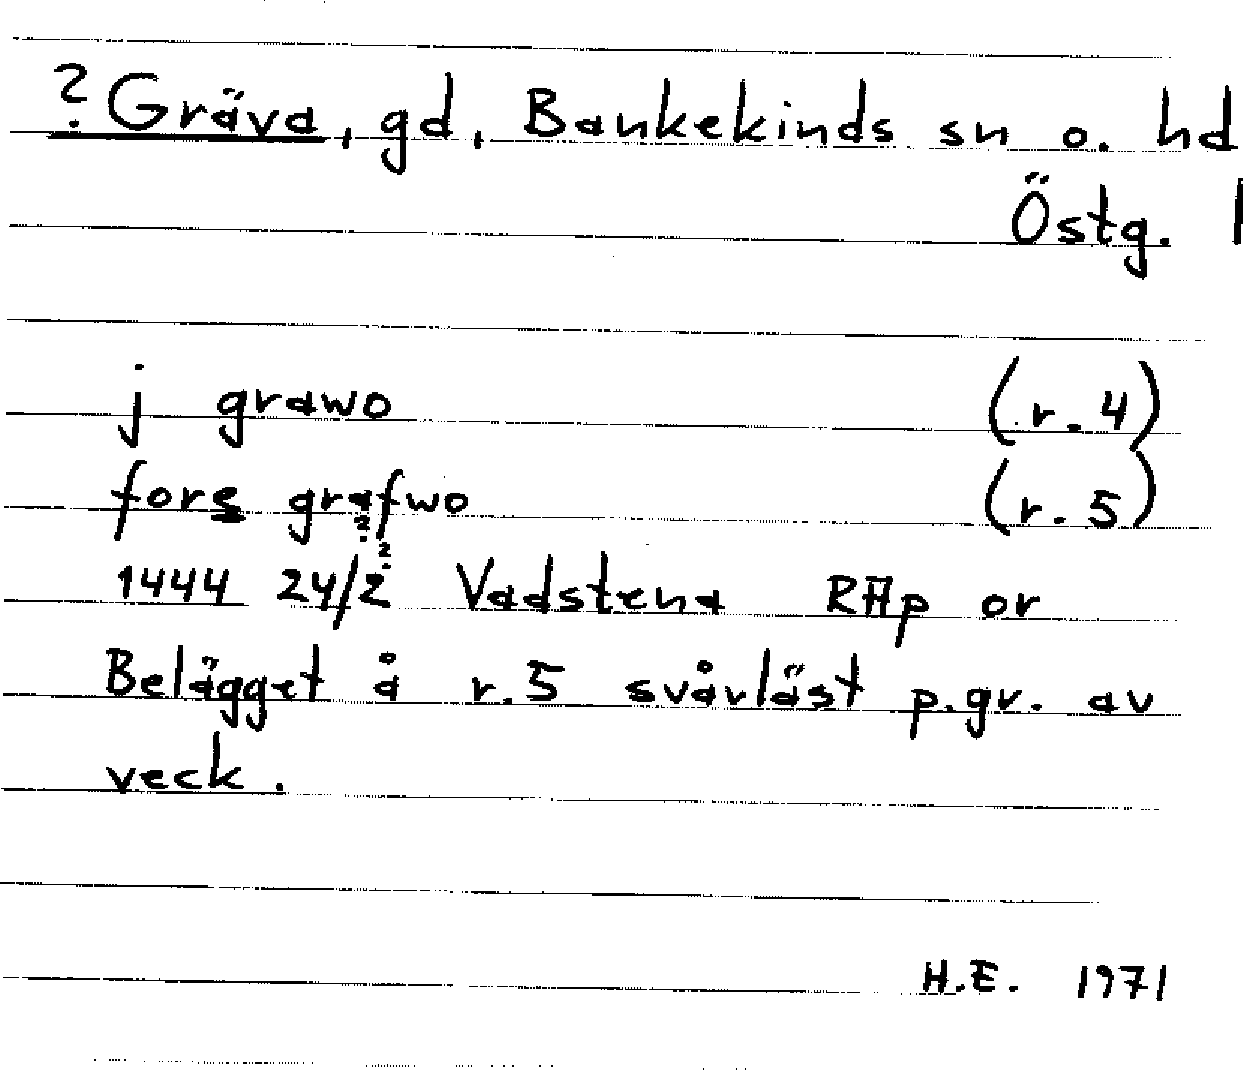 ? Gräva, gd, Bankekinds sn o. hd
Östg. l
j grawo (r. 4)
fors grafwo (r. 5)
? ?
1444 24/2 Vadstena RAp or
Belägget å r. 5 svårläst p.gr. av
veck.
H.E. 1971